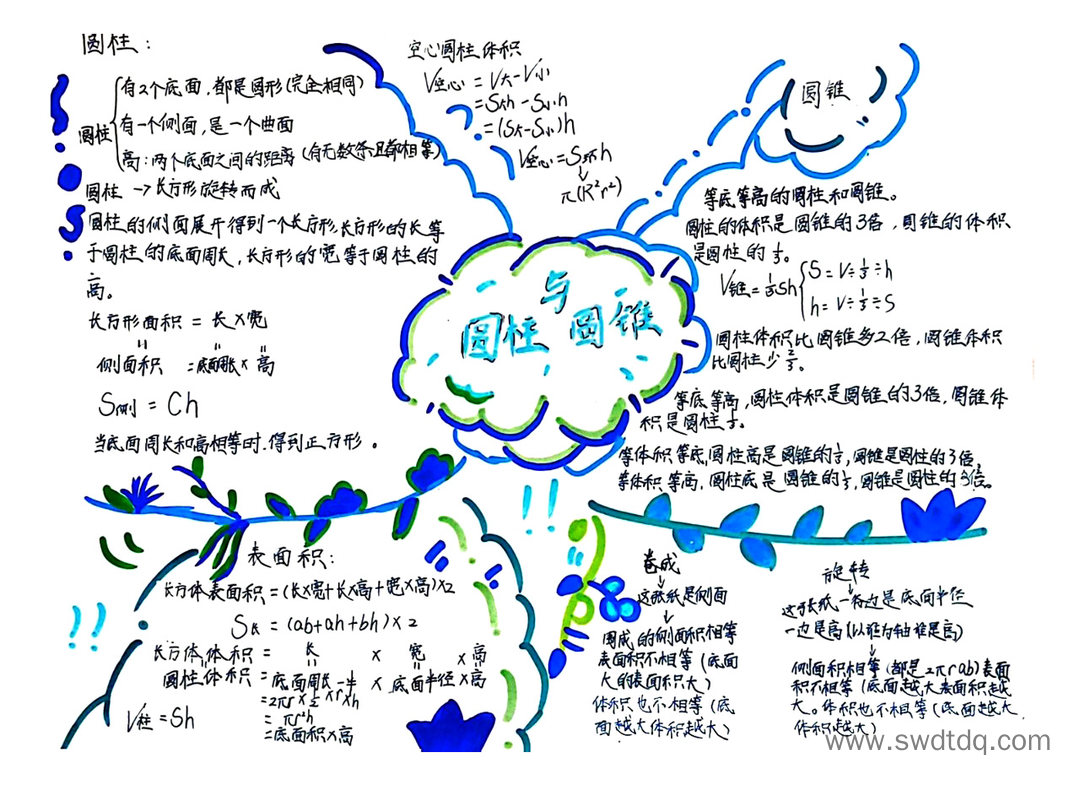 圆柱：
圆柱
有2个底面，都是圆形(完全相同)
有一个侧面，是一个曲面
高：两个底面之间的距离(有无数条且都相等)
圆柱 → 长方形旋转而成
圆柱的侧面展开得到一个长方形,长方形的长等
于圆柱的底面周长，长方形的宽等于圆柱的
高。
长方形面积 = 长×宽
侧面积 =底面周长× 高
S侧 = Ch
当底面周长和高相等时，得到正方形。
空心圆柱体积
V空心 = V大-V小
=S大h - S小h
=(S大-S小)h
V空心=S环h
π(R²r²)
圆锥
等底等高的圆柱和圆锥。
圆柱的体积是圆锥的3倍，圆锥的体积
是圆柱的⅓。
V锥=⅓Sh
S=V÷⅓÷h
h=V÷⅓÷S
圆柱体积比圆锥多2倍，圆锥体积
比圆柱少⅔。
等底等高，圆柱体积是圆锥的3倍，圆锥体
积是圆柱⅓。
等体积等底,圆柱高是圆锥的⅓,圆锥是圆柱的3倍,
等体积等高，圆柱底是圆锥的⅓,圆锥是圆柱的3倍。
与
圆柱 圆锥
表面积：
长方体表面积=(长×宽+长×高+宽×高)×2
S长 = (ab+ah+bh)×2
长方体体积 = 长 × 宽 × 高
圆柱体积 = 底面周长一半 × 底面半径×高
=2πr×½×r×h
= πr²h
=底面积×高
V柱=Sh
卷成
这张纸是侧面
围成的侧面积相等
表面积不相等(底面
大的表面积大)
体积也不相等(底
面越大体积越大)
旋转
这张纸一边是底面半径
一边是高(以谁为轴谁是高)
侧面积相等(都是2πrab)表面
积不相等(底面越大表面积越
大。体积也不相等(底面越大
体积越大)
www.swdtdq.com